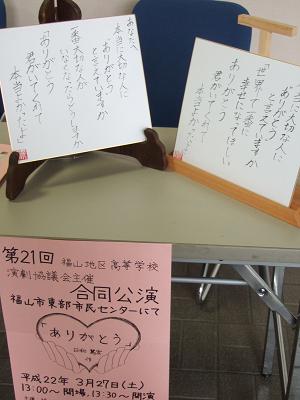 あなたへ
本当に大切な人に
「ありがとう」
と言えていますか
一番大切な人が
いなくなったらどうしますか
「ありがとう
君がいてくれて
本当によかったよ」
大切な人に
ありがとう
と言えていますか
「世界で一番
幸せになってほしい
ありがとう
君がいてくれて
本当によかったよ」
第21回 福山地区高等学校
演劇協議会主催
合同公演
福山市東部市民センターにて
「ありがとう」
作
平成22年 3月27日(土)
13:00〜開場、13:30〜開演